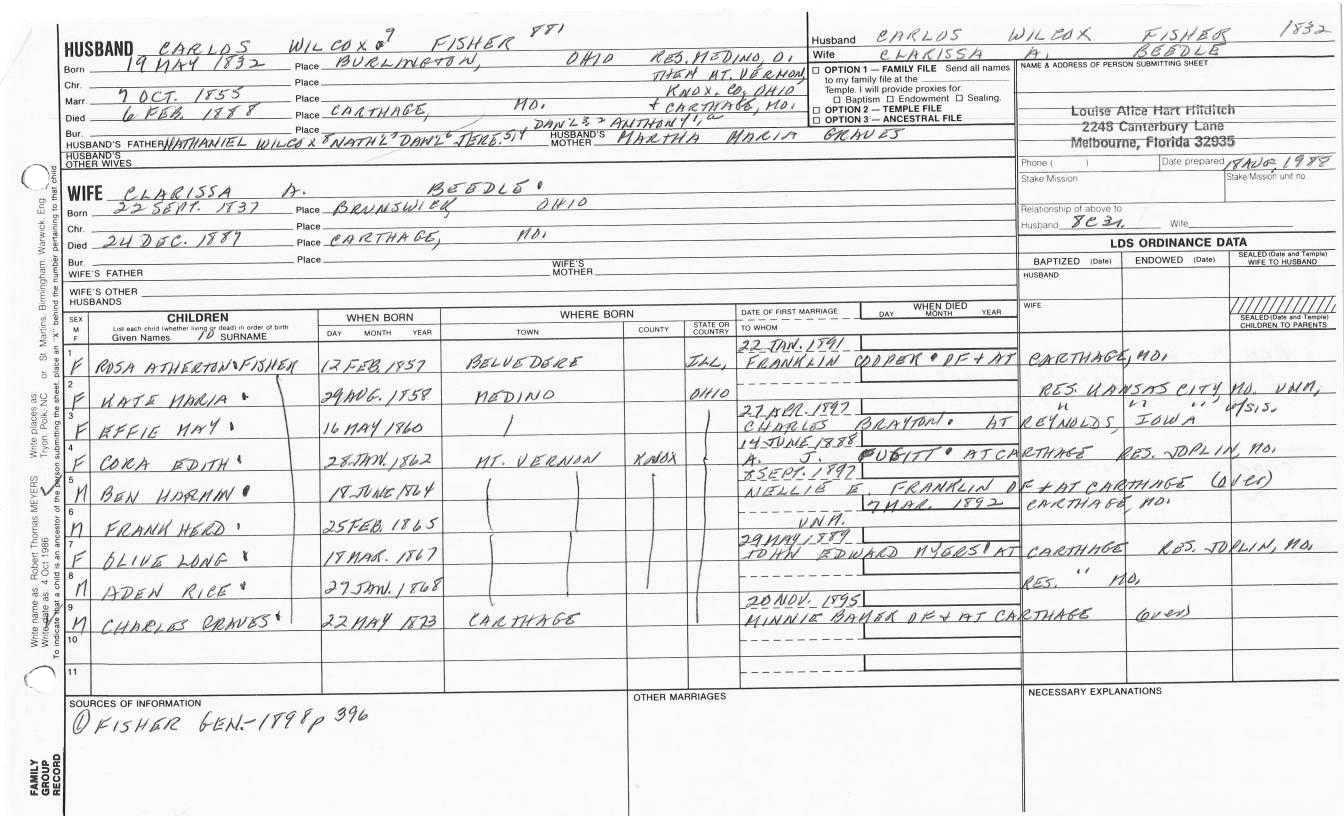 HUSBAND CARLOS WILCOX 9 FISHER 881
Born 19 MAY 1832 Place BURLINGTON, OHIO RES. MEDINO, O.
Chr. Place THEN MT. VERNON,
Marr. 7 OCT. 1855 Place KNOX. CO, OHIO
Died 6 FEB. 1888 Place CARTHAGE, MO. + CARTHAGE, MO.
Bur. Place DAN'L 3, 2 ANTHONY 1, a
HUSBAND'S FATHER NATHANIEL WILCOX 8 NATH'L 7 DAN'L 6 JERE. 5, 4 HUSBAND'S MOTHER MARTHA MARIA GRAVES
HUSBAND'S OTHER WIVES
Husband CARLOS WILCOX FISHER 1832
Wife CLARISSA A. BEEDLE
☐ OPTION 1 — FAMILY FILE Send all names
to my family file at the
Temple. I will provide proxies for
☐ Baptism ☐ Endowment ☐ Sealing.
☐ OPTION 2 — TEMPLE FILE
☐ OPTION 3 — ANCESTRAL FILE
NAME & ADDRESS OF PERSON SUBMITTING SHEET
Louise Alice Hart Hilditch
2248 Canterbury Lane
Melbourne, Florida 32935
Phone ( ) Date prepared 18 AUG. 1988
Stake/Mission Stake/Mission unit no.
Relationship of above to
Husband 8C3R. Wife
WIFE CLARISSA A. BEEDLE
Born 22 SEPT. 1837 Place BRUNSWICK, OHIO
Chr. Place
Died 24 DEC. 1889 Place CARTHAGE, MO.
Bur. Place
WIFE'S FATHER WIFE'S MOTHER
WIFE'S OTHER HUSBANDS
LDS ORDINANCE DATA
BAPTIZED (Date) ENDOWED (Date) SEALED (Date and Temple) WIFE TO HUSBAND
HUSBAND
WIFE
SEALED (Date and Temple) CHILDREN TO PARENTS
SEX M F CHILDREN WHEN BORN WHERE BORN DATE OF FIRST MARRIAGE WHEN DIED
List each child (whether living or dead) in order of birth
Given Names 10 SURNAME DAY MONTH YEAR TOWN COUNTY STATE OR COUNTRY TO WHOM DAY MONTH YEAR
22 JAN. 1891
1 F ROSA ATHERTON FISHER 12 FEB. 1857 BELVEDERE ILL, FRANKLIN COOPER OF + AT CARTHAGE, MO.
2 F KATE MARIA 29 AUG. 1858 MEDINO OHIO RES. KANSAS CITY, MO. UNM,
27 APR. 1897 " " " w/sis.
3 F EFFIE MAY 16 MAY 1860 CHARLES BRAYTON AT REYNOLDS, IOWA
14 JUNE 1888
4 F CORA EDITH 28 JAN. 1862 MT. VERNON KNOX A. J. PUGITT AT CARTHAGE RES. JOPLIN, MO.
8 SEPT. 1897
5 M BEN HARMAN 18 JUNE 1864 NELLIE E. FRANKLIN OF + AT CARTHAGE (over)
7 MAR. 1892 CARTHAGE, MO.
6 M FRANK HERD 25 FEB. 1865 UNM.
29 MAY 1889
7 F OLIVE LONG 18 MAR. 1867 JOHN EDWARD MYERS AT CARTHAGE RES. JOPLIN, MO.
8 M ADEN RICE 27 JAN. 1868 RES. " MO.
20 NOV. 1895
9 M CHARLES GRAVES 22 MAY 1873 CARTHAGE MINNIE BAKER OF + AT CARTHAGE (over)
10
11
SOURCES OF INFORMATION
① FISHER GEN.-1898 p 396
OTHER MARRIAGES
NECESSARY EXPLANATIONS
FAMILY GROUP RECORD
Write name as: Robert Thomas MEYERS Write places as Tryon, Polk, NC or St. Martins, Birmingham, Warwick, Eng.
Write date as: 4 Oct 1986
To indicate that a child is an ancestor of the person submitting the sheet, place an "X" behind the number pertaining to that child